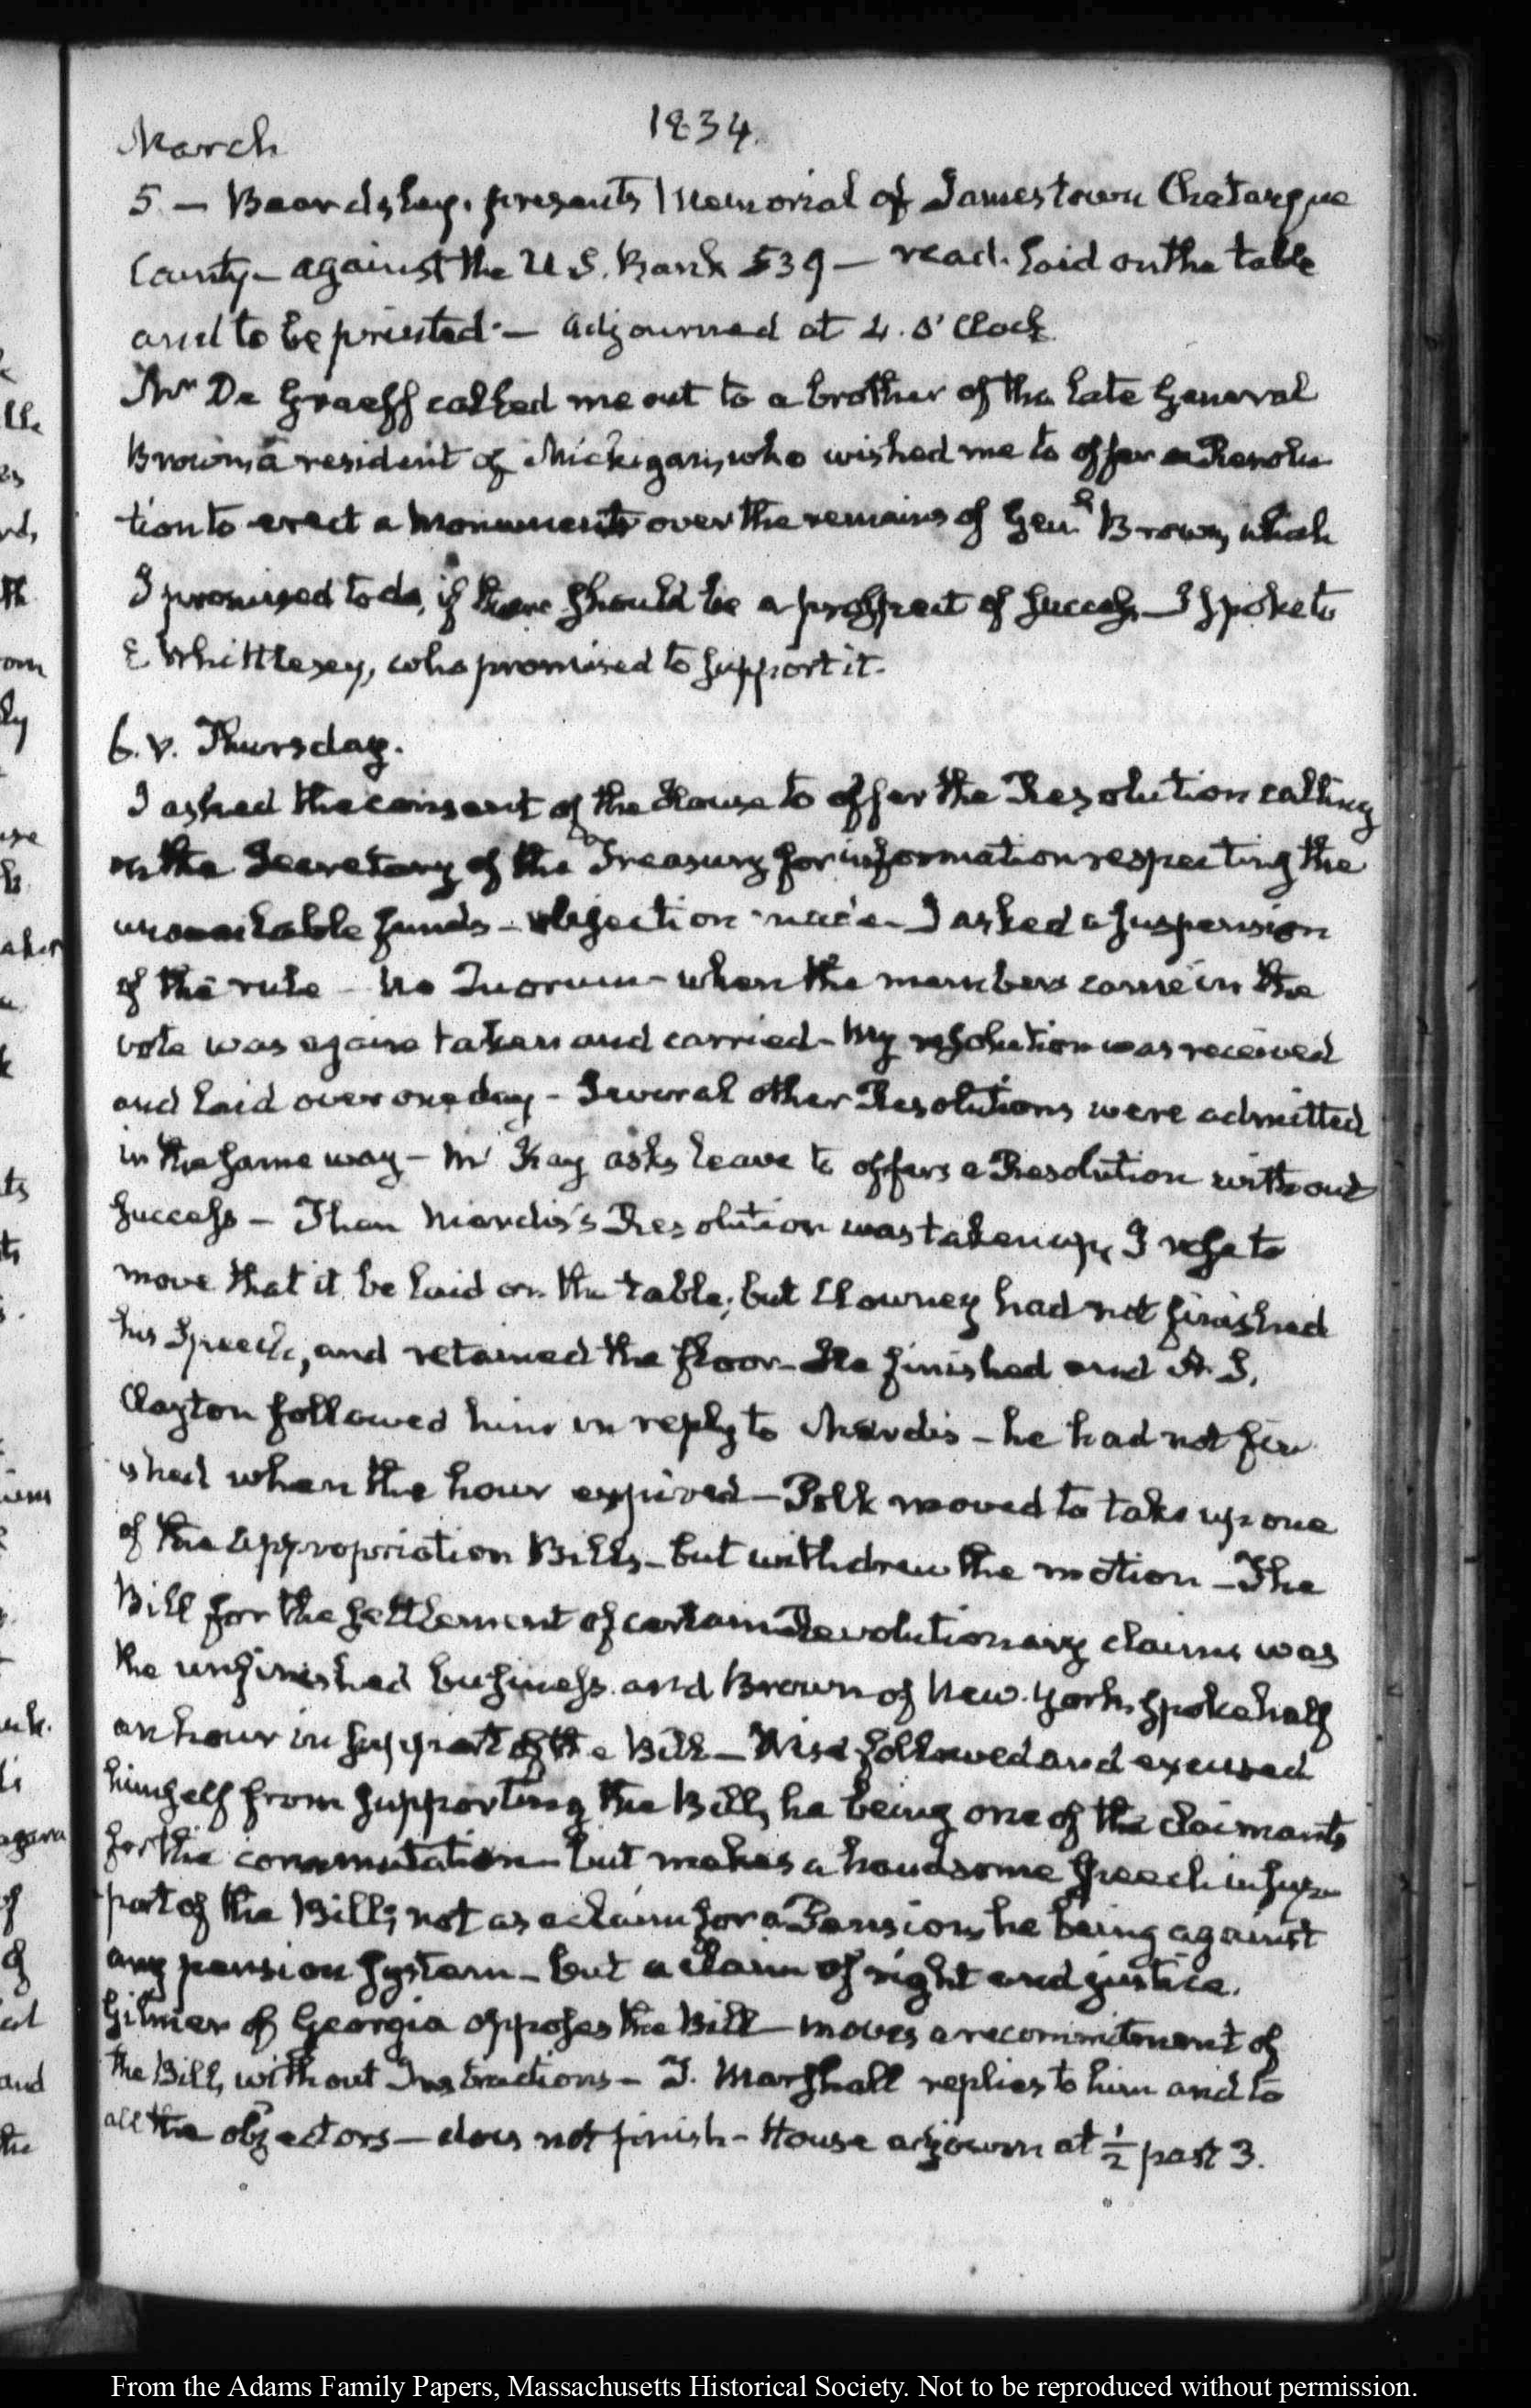 1834.
March
5 — Beardsley. presents 1 Memorial of Jamestown Chatauque
County — against the U.S. Bank 539 — read. laid on the table
and to be printed. — Adjourned at 4. O'Clock
Mr. De Graeff called me out to a brother of the late General
Brown, a resident of Michigan, who wished me to offer a Resolu
tion to erect a Monument over the remains of Genl. Brown, which
I promised to do, if there should be a prospect of success — I spoke to
E Whittlesey, who promised to support it.
6. V. Thursday.
I asked the consent of the House to offer the Resolution calling
on the Secretary of the Treasury for information respecting the
unavailable funds — objection made — I asked a suspension
of the rule — no Quorum — when the members came in the
vote was again taken and carried — My resolution was received
and laid over one day — Several other Resolutions were admitted
in the same way — Mr Kay asks leave to offer a Resolution without
success — Then Mardis's Resolution was taken up, I rose to
move that it be laid on the table; but Clowney had not finished
his Speech, and retained the floor — He finished and A. S.
Clayton followed him in reply to Mardis — he had not fin
ished when the hour expired — Polk moved to take up one
of the appropriation Bills — but withdrew the motion — The
Bill for the settlement of certain Revolutionary claims was
the unfinished business. and Brown of New-York, spoke half
an hour in support of the Bill — Wise followed and excused
himself from supporting the Bill, he being one of the claimants
for the commutation — but makes a handsome speech in sup
port of the Bill; not as a claim for a Pension, he being against
any pension system — but a claim of right and justice.
Gilmer of Georgia opposes the Bill — moves a recommitment of
the Bill, without Instructions — T. Marshall replies to him and to
all the objectors — does not finish — House adjourn at ½ past 3.
From the Adams Family Papers, Massachusetts Historical Society. Not to be reproduced without permission.